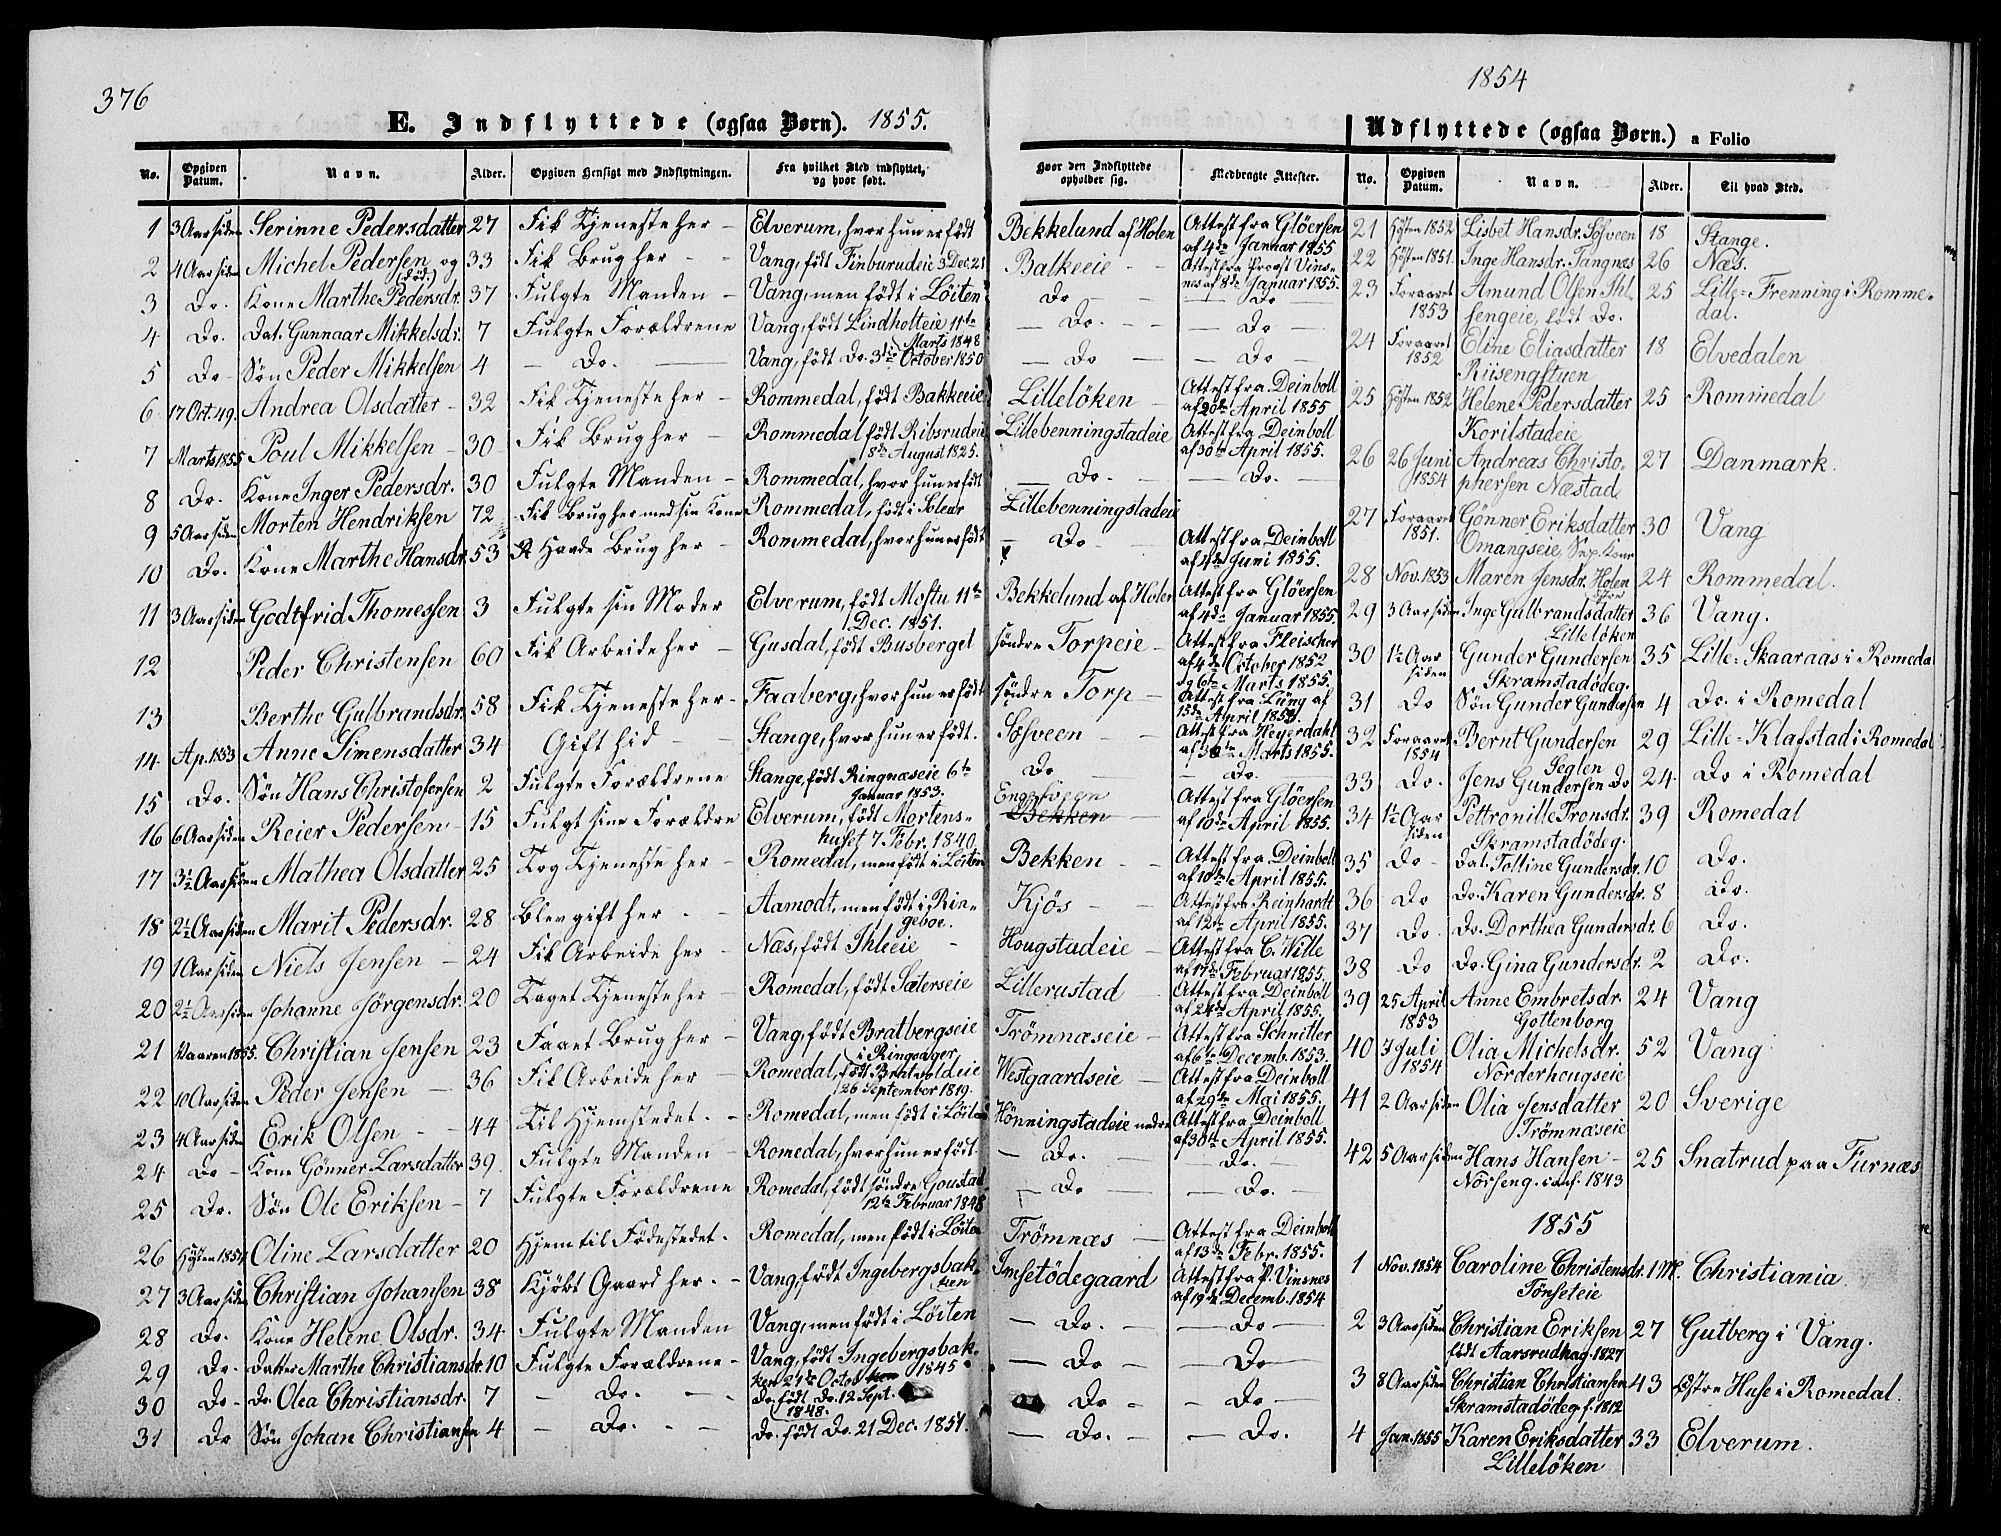 376
E. Indflyttede (ogsaa Børn). 1855.
No. Opgiven Datum. Navn. Alder. Opgiven Hensigt med Indflytningen. Fra hvilket Sted indflyttet, og hvor født. Hvor den Indflyttede opholder sig. Medbragte Attester.
1 3 Aar siden Serinne Pedersdatter 27 Fik Tjeneste her – Elverum, hvor hun er født Bekkelund af Holen Attest fra Glöersen af 4de Januar 1855
2 4 Aar siden Michel Pedersen og 33 Fik Brug her – Vang, født Finburudeie 3 Dec. 21 Balkeeie Attest fra Provst Vinsnes af 8de Januar 1855.
3 Do. Kone Marthe Pedersdr. (død) 37 Fulgte Manden – Vang, men født i Löiten Do Do
4 Do. Dat. Gunnaar Mikkelsdr. 7 Fulgte Forældrene Vang, født Lindholteie 11te Marts 1848 Do. Do
5 Do Søn Peder Mikkelsen 4 Do. Vang, født Do. 3die October 1850 Do Do
6 17 Oct. 49. Andrea Olsdatter 32 Fik Tjeneste her – Rommedal, født Bakkeeie Lilleløken Attest fra Deinboll af 20de April 1855
7 Marts 1855 Poul Mikkelsen 30 Fik Brug her – Rommedal, født Ribsrudeie 8de August 1825. Lillebenningstadeie Attest fra Deinboll af 30te April 1855.
8 Do. Kone Inger Pedersdr. 30 Fulgte Manden – Rommedal, hvor hun er født Do. Do.
9 5 Aar siden Morten Hendriksen 72 Fik Brug her med sin Kone Rommedal, født i Soleur Lillebenningstadeie
10 Do. Kone Marthe Hansdr. 53 Havde Brug her – Rommedal, hvor hun er født Do Attest fra Deinboll af 4de Juni 1855.
11 3 Aar siden Godtfrid Thomessen 3 Fulgte sin Moder Elverum, født Mostu 11te Dec. 1851. Bekkelund af Holen Attest fra Glöersen af 4de Januar 1855.
12 Peder Christensen 60 Fik Arbeide her – Gusdal, født Busberget søndre Torpeie Attest fra Fleischer af 4de October 1852 og 6te Marts 1855.
13 Berthe Gulbrandsdr. 58 Fik Tjeneste her – Faaberg, hvor hun er født søndre Torp Attest fra Lüng af 15de April 1853
14 Ap. 1853 Anne Simensdatter 34 Gift hid Stange, hvor hun er født. Søsveen Attest fra Heyerdahl af 30te Marts 1855.
15 Do. Søn Hans Christofersen 2 Fulgte Forældrene Stange, født Ringnæseie 6te Januar 1853. Do Do.
16 6 Aar siden Reier Pedersen 15 Fulgt sine Forældre Elverum, født Mortenshuset 7 Febr. 1840 Engesveen Bekken Attest fra Glöersen af 10de April 1855.
17 3½ Aar siden Mathea Olsdatter 25 Tog Tjeneste her – Romedal, men født i Löiten Bekken Attest fra Deinboll af 10de April 1855.
18 2½ Aar siden Marit Pedersdr. 28 Blev gift her. Aamodt, men født i Ringeboe. Kjøs Attest fra Reinhardt af 12te April 1855.
19 1 Aar siden Niels Jensen 24 Fik Arbeide her Næs, født Ihleeie Hougstadeie Attest fra C. Wille af 17de Februar 1855.
20 2½ Aar siden Johanne Jørgensdr. 20 Taget Tjeneste her Romedal, født Sæterseie Lillerustad Attest fra Deinboll af 24de April 1855.
21 Vaaren 1855. Christian Jensen 23 Faaet Brug her – Vang, født Bratbergseie i Ringsager Trömnæseie Attest fra Schnitler af 6te Decemb. 1853.
22 10 Aar siden Peder Jensen 36 Fik Arbeide her Romedal, født Brutvoldeie 26 September 1819. Westgaardseie Attest fra Deinboll af 29de Mai 1855.
23 4 Aar siden Erik Olsen 44 Til Hjemstedet. Romedal, men født i Löiten Hönningstadeie nedre Attest fra Deinboll af 30te April 1855.
24 Do Kone Gönner Larsdatter 39. Fulgte Manden – Romedal, hvor hun er født. Do. Do.
25 Do. Søn Ole Eriksen 7 Fulgte Forældrene Romedal, født søndre Goustad 12te Februar 1848 Do Do.
26 Høsten 1854 Oline Larsdatter 20 Hjem til Fødestedet. Romedal, men født i Löiten Trömnæs Attest fra Deinboll af 13de Febr. 1855.
27 3 Aar siden Christian Johansen 38 Kjöbt Gaard her. Vang, født Ingebergsbakken Imsetødegaard Attest fra P. Vinsnes af 19de Decemb. 1854
28 Do. Kone Helene Olsdr. 34 Fulgte Manden Vang, men født i Löiten Do. Do
29 Do. Datter Marthe Christiansdr. 10 Fulgte Forældrene Vang, født Ingebergsbakken 27de Octob 1845 Do Do
30 Do Do Olea Christiansdr. 7 Do. Do. født Do. 12 Sept. 1848. Do Do
31 Do Søn Johan Christiansen 4 Do. Do. født Do. 21 Dec. 1851. Do. Do.
1854
Udflyttede (ogsaa Børn.) a Folio
No. Opgiven Datum. Navn. Alder. Til hvad Sted.
21 Høsten 1852 Lisbet Hansdr. Søsveen 18 Stange.
22 Høsten 1851. Inge Hansdr. Tangnæs 26 Næs.
23 Foraaret 1853 Amund Olsen Ihlsengeie, født Do. 25 Lille-Frenning i Rommedal.
24 Foraaret 1852 Eline Eliasdatter Riisengstuen 18 Elvedalen
25 Høsten 1852 Helene Pedersdatter Korilstadeie 25 Rommedal
26 26 Juni 1854 Andreas Christophersen Næstad 27 Danmark.
27 Foraaret 1851. Gönner Eriksdatter Omangseie Sep. Kone 30 Vang
28 Nov. 1853 Maren Jensdr. Holen 24 Rommedal.
29 3 Aar siden Inge Gulbrandsdatter Lilleløken 36 Vang.
30 1½ Aar siden Gunder Gundersen Skramstadödeg. 35 Lille-Skaaraas i Romedal
31 Do Søn Gunder Gundersen 4 Do. i Romedal
32 Foraaret 1854 Bernt Gundersen Seglen 29 Lille-Klafstad i Romedal
33 Do. Jens Gundersen Do 24 Do i Romedal
34 1½ Aar siden Pettronille Tronsdr. Skramstadödeg. 39 Romedal
35 Do Dat. Tolline Gundersdr. 10 Do.
36 Do Do. Karen Gundersdr. 8 Do.
37 Do Do. Dorthea Gundersdr. 6 Do.
38 Do Do. Gina Gundersdr. 2 Do.
39 25 April 1853 Anne Embretsdr. Gottenborg 24 Vang
40 7 Juli 1854 Olia Michelsdr. Norderhougseie 52 Vang
41 2 Aar siden Olia Jensdatter Trömnæseie 20 Sverige
42 5 Aar siden Hans Hansen Nörseng. conf. 1843 25 Snatrud paa Furnæs
1855
1 Nov. 1854 Caroline Christensdr. Tönseteie 1 M. Christiania
2 3 Aar siden Christian Eriksen født Aarsrudhag. 1827 27 Gutberg i Vang.
3 8 Aar siden Christian Christiansen Skramstadödeg f. 1812 43 østre Huse i Romedal.
4 Jan. 1855 Karen Eriksdatter Lilleløken 33 Elverum.